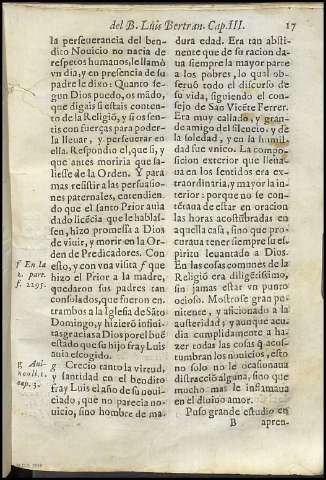 del B. Luis Bertran. Cap. III. 17
la perseuerancia del ben-
dito Nouicio no nacia de
respetos humanos, le llamò
vn dia, y en presencia de su
padre le dixo: Quanto se-
gun Dios puedo, os mãdo,
que digais si estais conten-
to de la Religiõ, y si os sen-
tis con fuerças para poder-
la lleuar, y perseuerar en
ella. Respondio el, que si, y
que antes moriria que sa-
liesse de la Orden. Y para
mas resistir a las persuasio-
nes paternales, entendien-
do que el santo Prior auia
dado licẽcia que le hablas-
sen, hizo promessa a Dios
de viuir, y morir en la Or-
den de Predicadores. Con
esto, y con vna visita f que
hizo el Prior a la madre,
quedaron sus padres tan
consolados, que fueron en-
trambos a la Iglesia de Sãto
Domingo, y hizierõ infini-
tas gracias a Dios por el buẽ
estado que su hijo fray Luis
auia escogido.
g Crecio tanto la virtud,
y santidad en el bendito
fray Luis el año de su noui-
ciado, que no parecia no-
uicio, sino hombre de ma-
f En la
2. part.
f. 229.
g Anti-
cap. 3.
dura edad. Era tan absti-
nente que de su racion da-
ua siempre la mayor parte
a los pobres, lo qual ob-
seruò todo el discurso de
su vida, siguiendo el con-
sejo de San Vicẽte Ferrer.
Era muy callado, y gran-
de amigo del silencio, y de
la soledad, y en la humil-
dad fue vnico. La compo-
sicion exterior que lleua-
ua en los sentidos era ex-
traordinaria, y mayor la in-
terior: porque no se con-
tentaua de estar en oracion
las horas acostũbradas en
aquella casa, sino que pro-
curaua tener siempre su es-
piritu leuantado a Dios.
En las cosas comunes de la
Religiõ era diligẽtissimo,
sin jamas estar vn punto
ocioso. Mostrose gran pe-
nitente, y aficionado a la
austeridad; y aunque acu-
dia cumplidamente a ha-
zer todas las cosas q̃ acos-
tumbran los nouicios, esto
no solo no le ocasionaua
distracciõ alguna, sino que
mucho mas le inflamaua
en el diuino amor.
Puso grande estudio en
B apren-